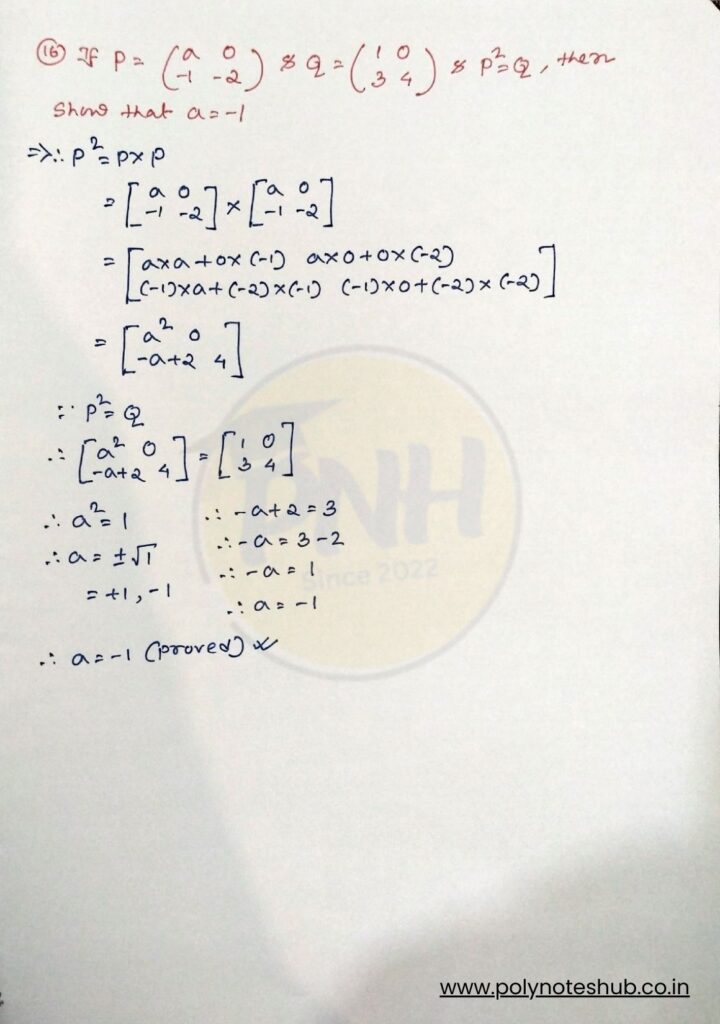 16 If P = (a 0 -1 -2) & Q = (1 0 3 4) & P²=Q, then
Show that a = -1
=>∴ P² = P× P
= [a 0 -1 -2] × [a 0 -1 -2]
= [a×a + 0×(-1) a×0 + 0×(-2)
(-1)×a + (-2)×(-1) (-1)×0 + (-2)×(-2)]
= [a² 0 -a+2 4]
∵ P² = Q
∴ [a² 0 -a+2 4] = [1 0 3 4]
∴ a² = 1 ∴ -a+2 = 3
∴ a = ±√1 ∴ -a = 3-2
= +1, -1 ∴ -a = 1
∴ a = -1
∴ a = -1 (proved)
PNH
Since 2022
www.polynoteshub.co.in